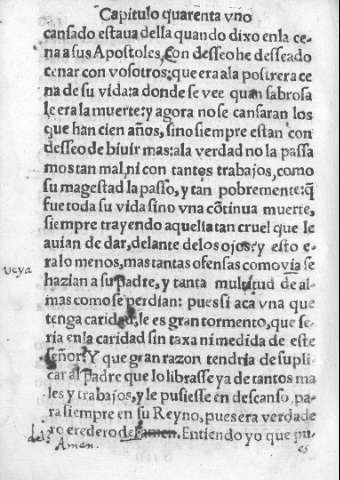 Capitulo quarenta vno
cansado estaua della quando dixo enla ce-
na a sus Apostoles, Con desseo he desseado
cenar con vosotros: que era ala postrera ce
na de su vida: a donde se vee quan sabrosa
le era la muerte: y agora no se cansaran los
que han cien años, sino siempre estan con
desseo de biuir mas: ala verdad no la passa
mos tan mal, ni con tantos trabajos, como
su magestad la passo, y tan pobremente: q̃
fue toda su vida sino vna cõtinua muerte,
siempre trayendo aquella tan cruel que le
auian de dar, delante delos ojos: y esto e-
ra lo menos, mas tantas ofensas como via se
veya
hazian a su Padre, y tanta multitud de al-
mas como se perdian: pues si aca vna que
tenga caridad, le es gran tormento, que se-
ria enla caridad sin taxa ni medida de este
señor? Y que gran razon tendria de supli
car al Padre que lo librasse ya de tantos ma
les y trabajos, y le pusiesse en descanso pa-
ra siempre en su Reyno, pues era verdade
ro eredero de Entiendo yo que pu-
Amen.
es